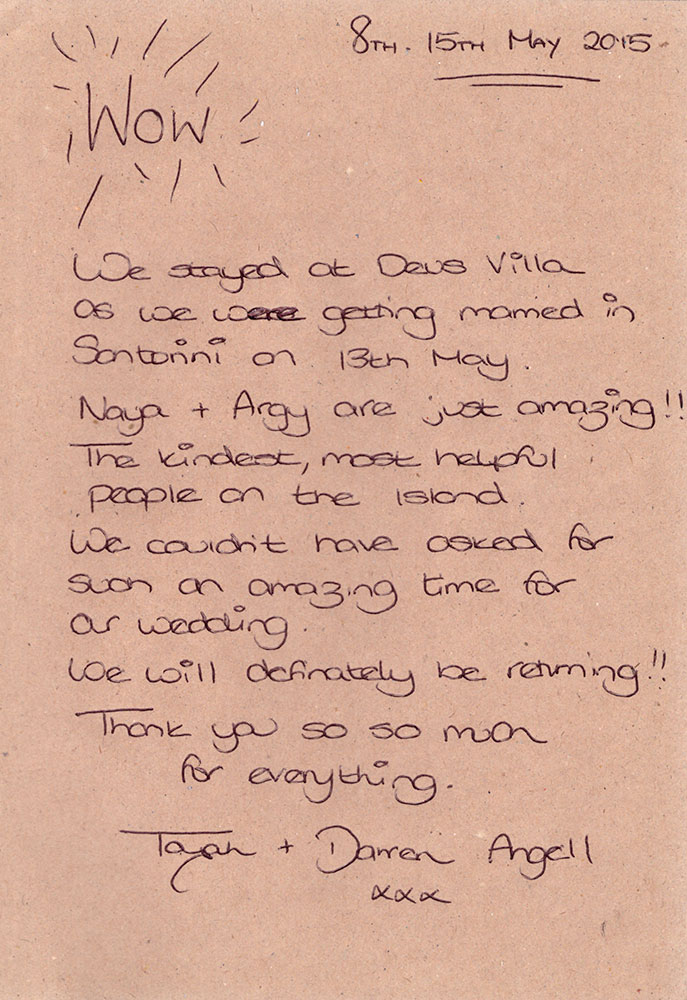 8TH. 15TH MAY 2015
WOW
We stayed at Deus Villa
as we were getting married in
Santorini on 13th May.
Naya + Argy are just amazing!!
The kindest, most helpful
people on the island.
We couldn't have asked for
such an amazing time for
our wedding.
We will definately be returning!!
Thank you so so much
for everything.
+ Darren Angell
xxx